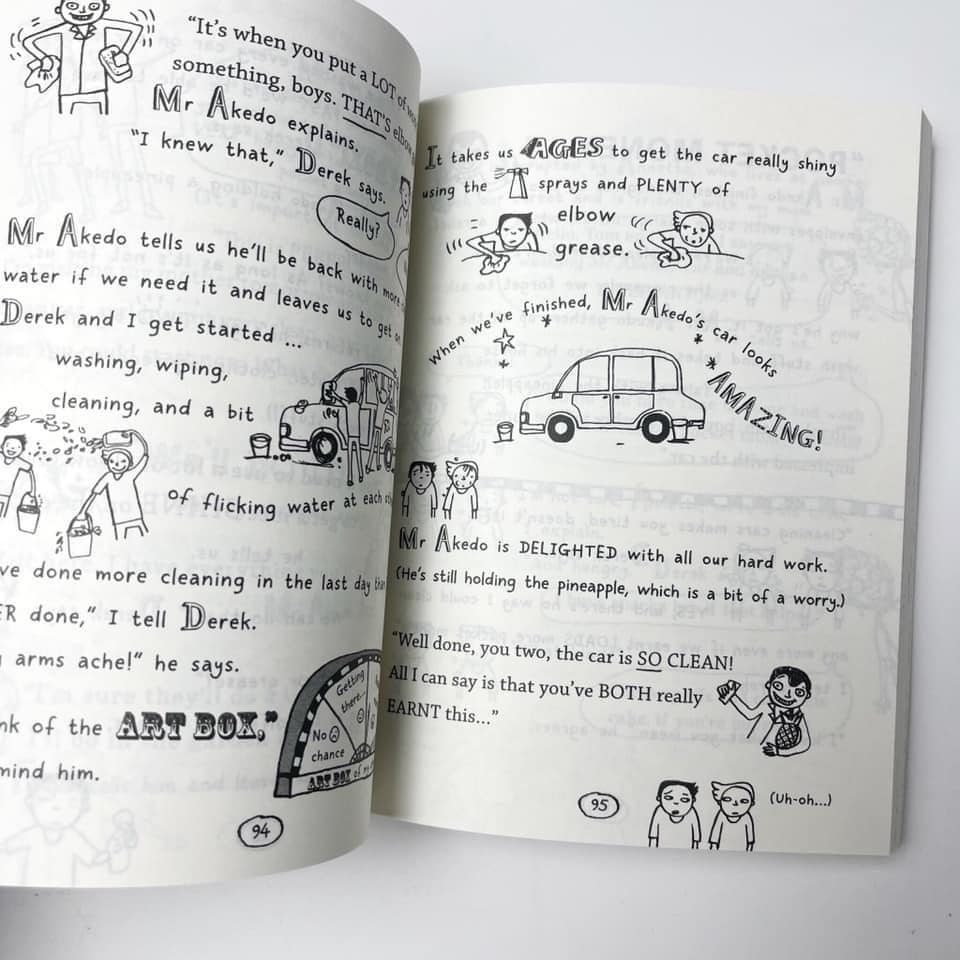 "It's when you put a LOT of
something, boys. THAT'S elbow
Mr Akedo explains.
"I knew that," Derek says.
Really?
Mr Akedo tells us he'll be back with more
water if we need it and leaves us to get on
Derek and I get started ...
washing, wiping,
cleaning, and a bit
of flicking water at each
done more cleaning in the last day
done," I tell Derek.
arms ache!" he says.
of the ART BOX,"
him.
Getting
there...
No
chance
ART BOX of
94
It takes us AGES to get the car really shiny
using the sprays and PLENTY of
elbow
grease.
When we've finished, Mr Akedo's car looks
AMAZING!
Mr Akedo is DELIGHTED with all our hard work.
(He's still holding the pineapple, which is a bit of a worry.)
"Well done, you two, the car is SO CLEAN!
All I can say is that you've BOTH really
EARNT this..."
(Uh-oh...)
95